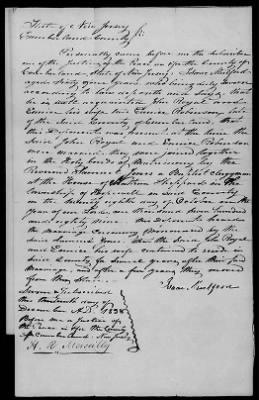 State of New Jersey
Cumberland County
Personally came before me the subscriber
one of the Justices of the Peace in & for the County of
Cumberland, State of New Jersey, Isaac
aged Sixty years, who being duly sworn
according to law deposeth and saith, that
he is well acquainted John Royal and
his wife late Robinson, late
of the said County of Cumberland, that
this Deponent was present at the time the
said John Royal and Robinson
were married, they were joined together
in the Holy bonds of Matrimony by the
Reverend Jones a Baptist Clergyman
at the house of Sheppards in the
Township of in said County
on the twenty eighth day of October in the
year of our Lord one thousand seven hundred
and ninety nine. This Deponent heard
the marriage ceremony pronounced by the
said Jones. That the said John Royal
and his wife continued to reside in
said County for several years, after their said
marriage, and after a few years they moved
from this State.
Isaac
Sworn & Subscribed
this thirteenth day of
December A.D. 1838
Before me a Justice of
the Peace in & for the County
of Cumberland New Jersey